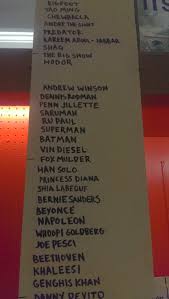 BIGFOOT
YAO MING
CHEWBACCA
ANDRE THE GIANT
PREDATOR
KAREEM ABDUL-JABBAR
SHAQ
THE BIG SHOW
HODOR
ANDREW WINSON
DENNIS RODMAN
PENN JILLETTE
SARUMAN
RU PAUL
SUPERMAN
BATMAN
VIN DIESEL
FOX MULDER
HAN SOLO
PRINCESS DIANA
SHIA LABEOUF
BERNIE SANDERS
BEYONCE
NAPOLEON
WHOOPI GOLDBERG
JOE PESCI
BEETHOVEN
KHALEESI
GENGHIS KHAN
DANNY DEVITO